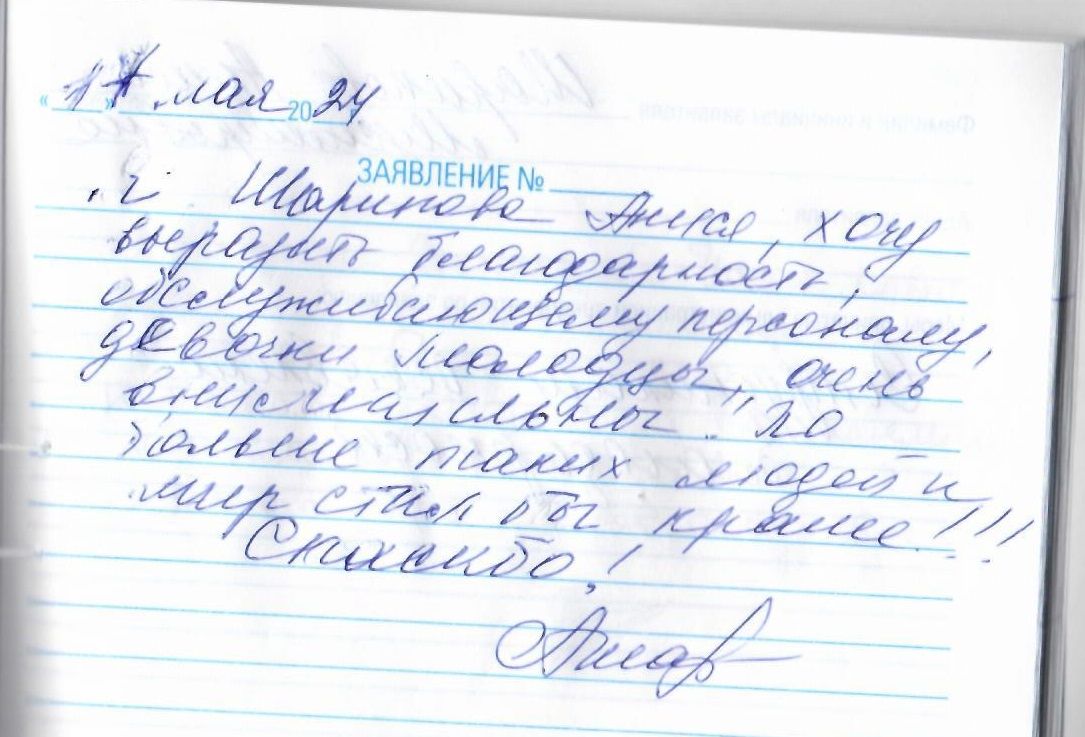 « 17 » мая 2024
ЗАЯВЛЕНИЕ №
Я Шарипова хочу
выразить благодарность,
обслуживающему персоналу,
девочки молодцы, очень
внимательны. По
больше таких людей и
мир стал бы краше!!!
Спасибо!